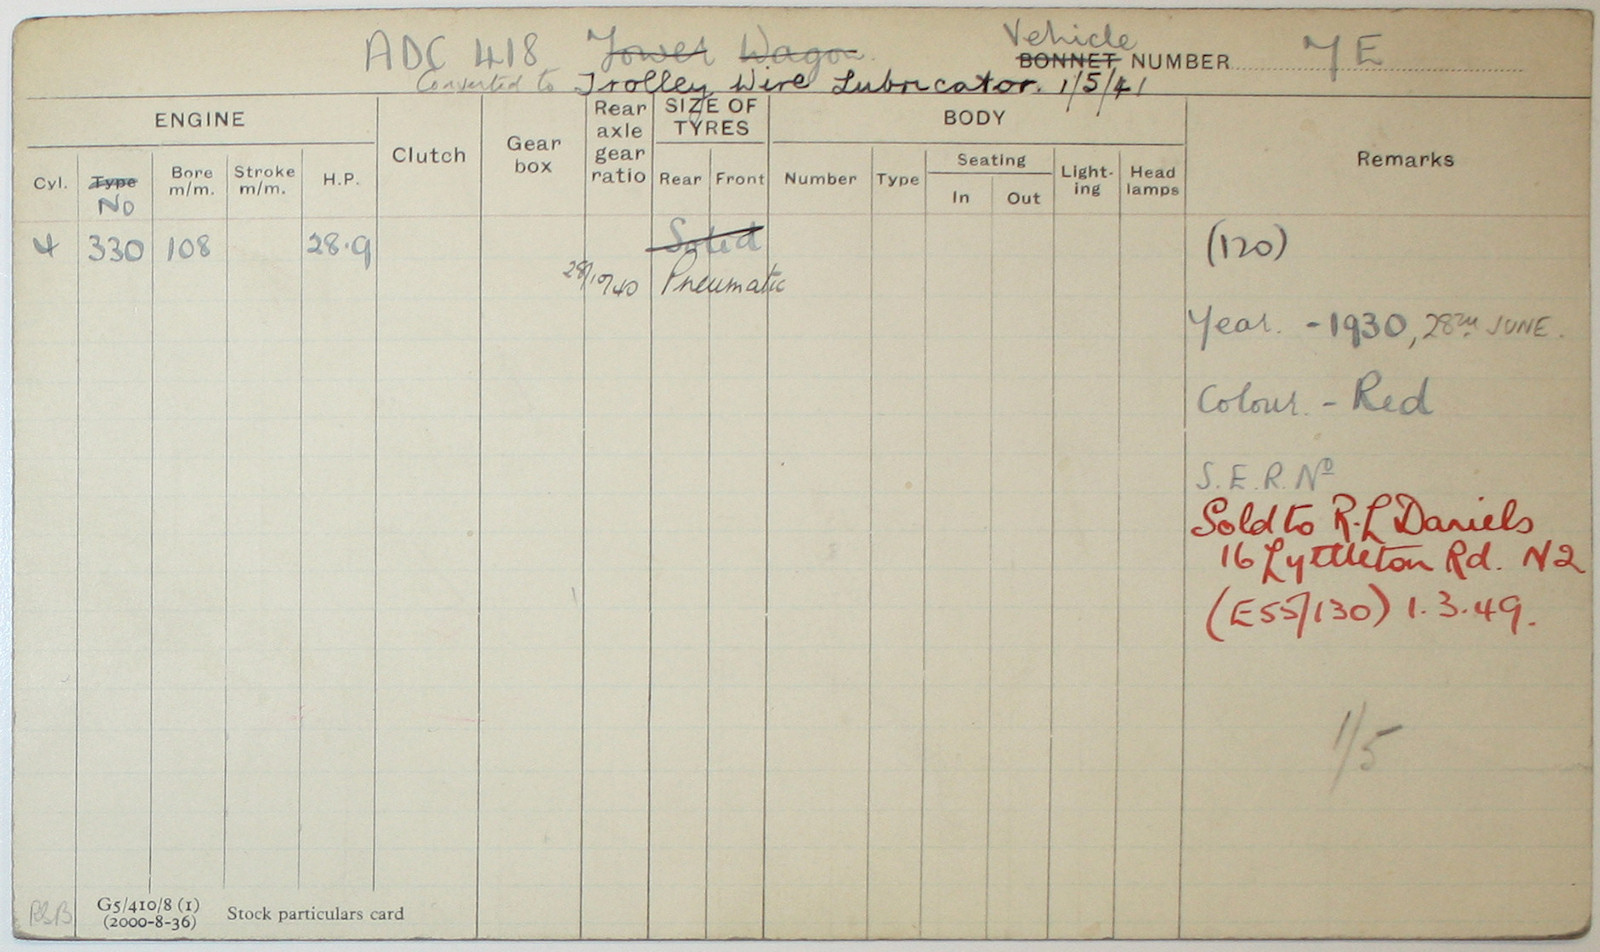 Vehicle
ADC 418 Tower Wagon. BONNET NUMBER 7E
Converted to Trolley Wire Lubricator. 1/5/41
ENGINE
Clutch
Gear box
Rear axle gear ratio
SIZE OF TYRES
BODY
Remarks
Cyl. Type Bore m/m. Stroke m/m. H.P.
No
Rear Front Number Type
Seating
In Out
Lighting
Head lamps
4 330 108 28.9 Solid (120)
28/10/40 Pneumatic
Year. - 1930, 28TH JUNE.
Colour. - Red
S.E.R. No
Sold to R.L Daniels
16 Lyttleton Rd. N2
(E55/130) 1.3.49.
1/5
G5/410/8 (1)
(2000-8-36)
Stock particulars card